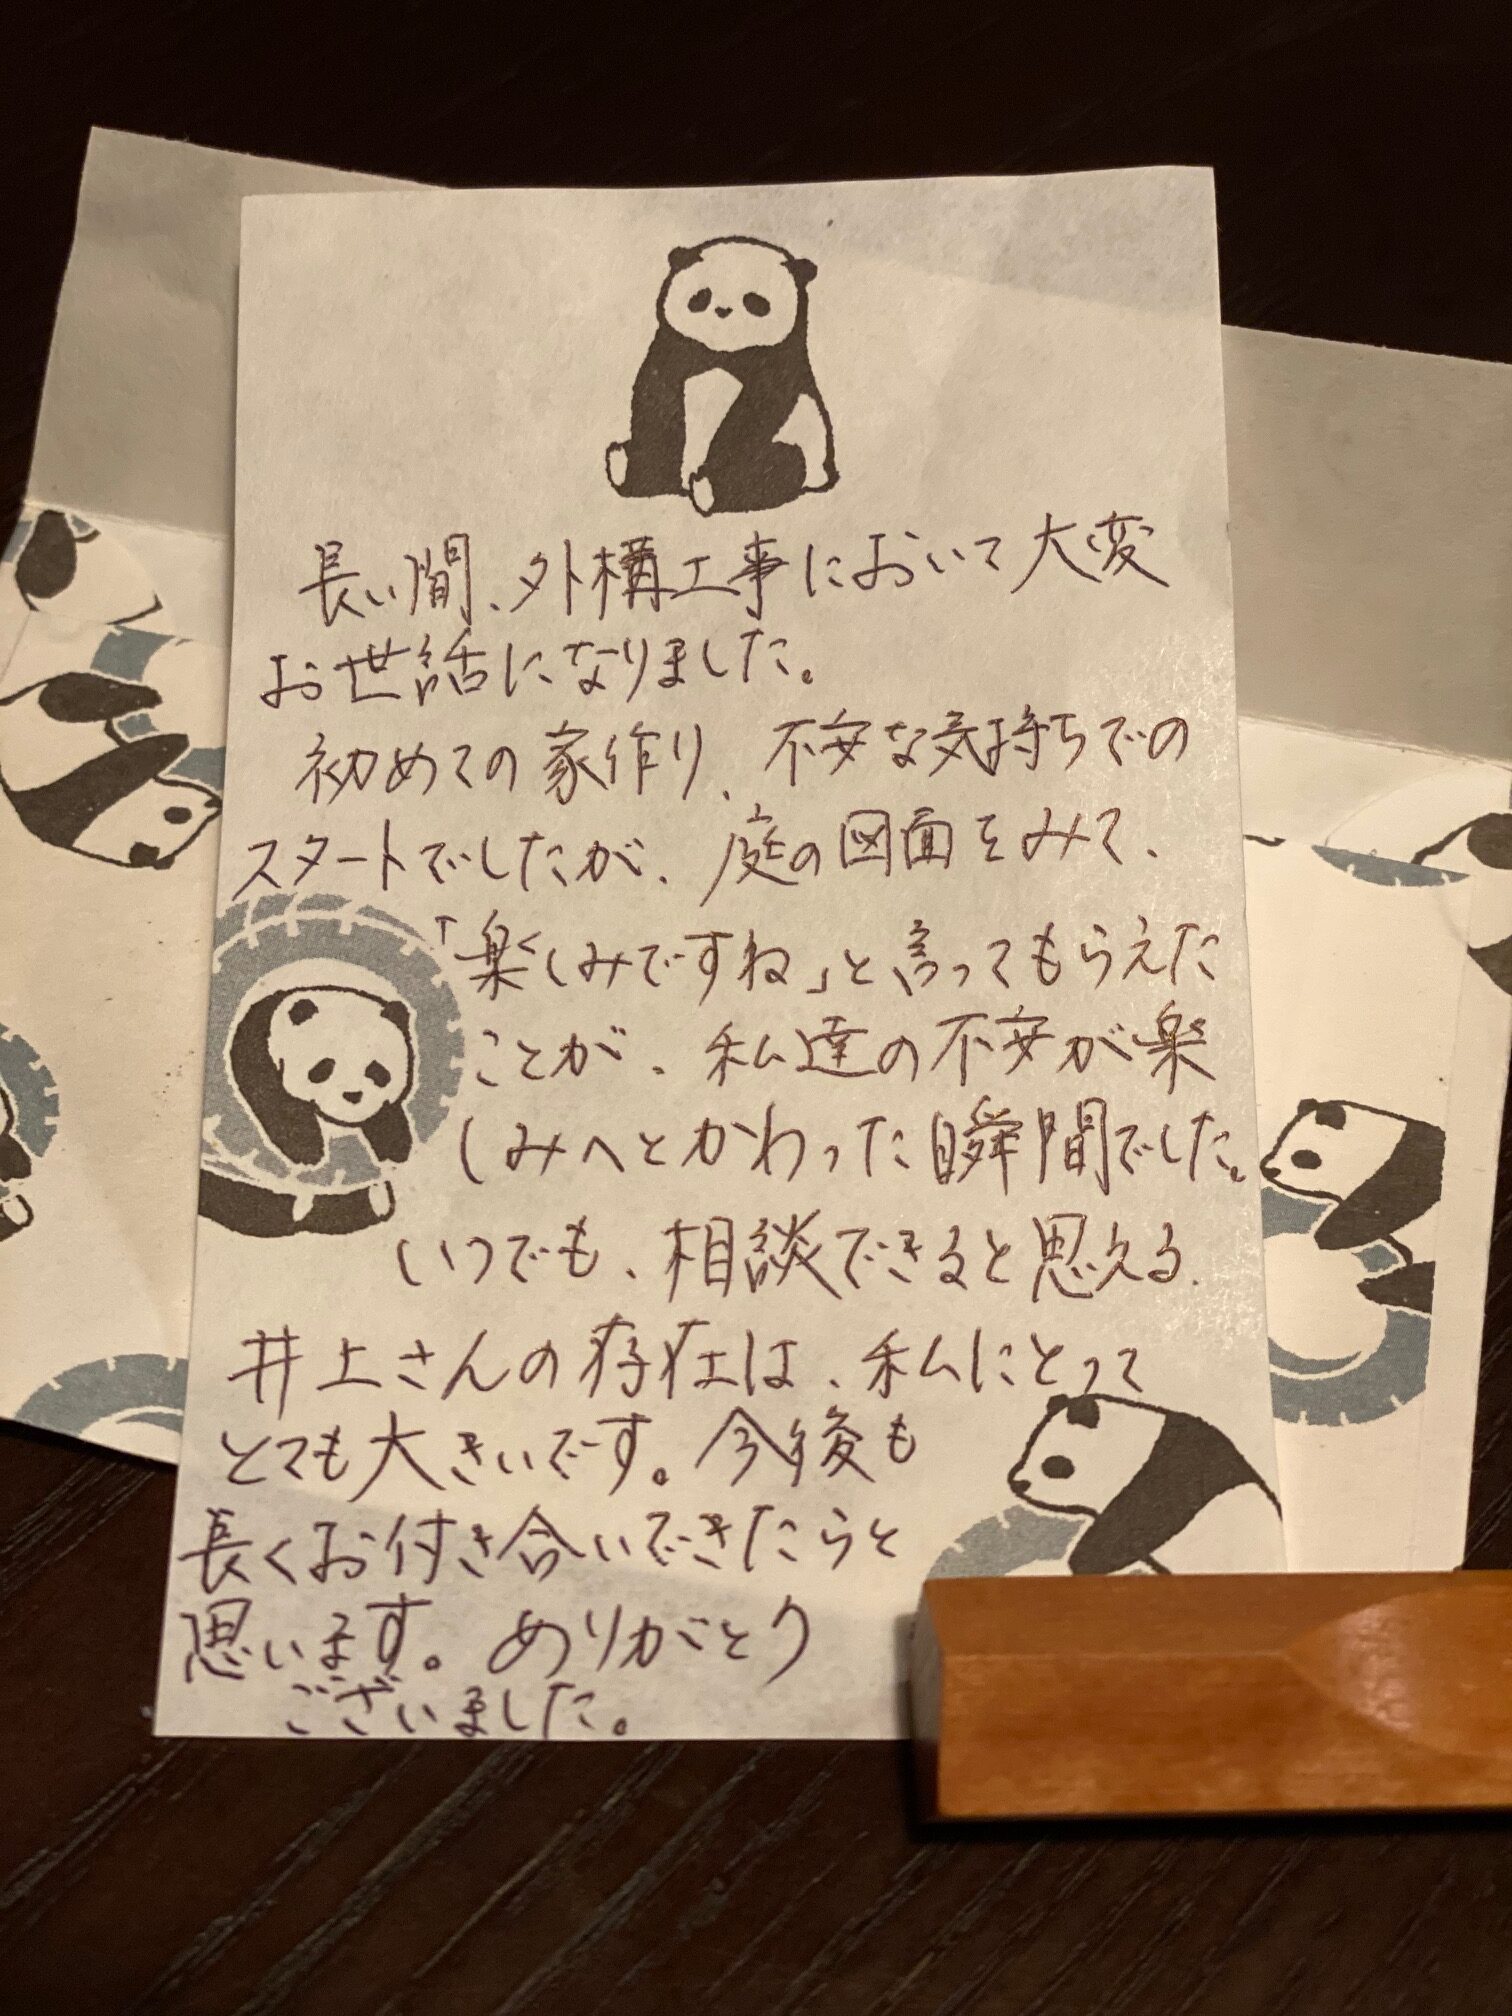 長い間、外構工事において大変
お世話になりました。
初めての家作り、不安な気持ちでの
スタートでしたが、庭の図面をみて、
「楽しみですね」と言ってもらえた
ことが、私達の不安が楽
しみへとかわった瞬間でした。
いつでも、相談できると思える、
井上さんの存在は、私にとって
とても大きいです。今後も
長くお付き合いできたらと
思います。ありがとう
ございました。